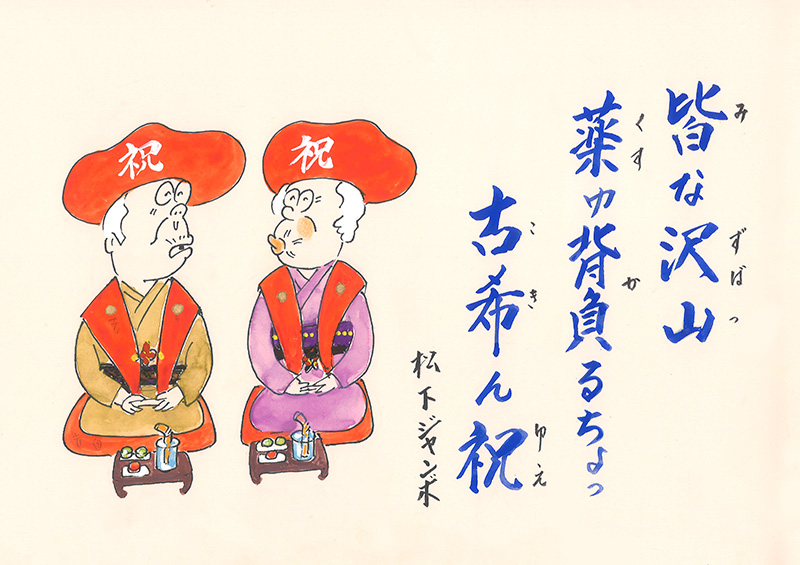 皆な沢山
み
ずばっ
薬ゆ背負るちょっ
くす
か
古希ん祝
こき
ゆえ
松下ジャンボ
祝
祝